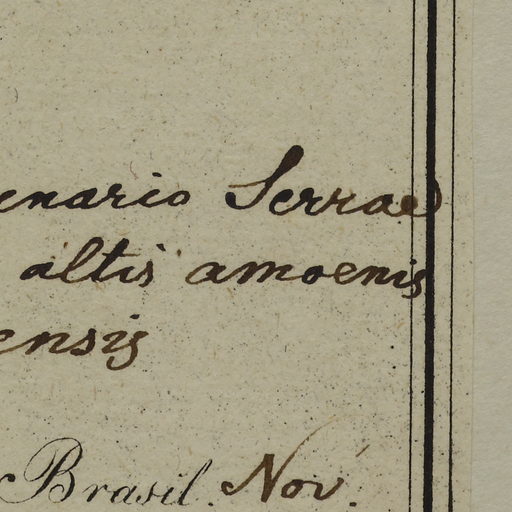 enario Serrae
altis amoenis
ensis
Brasil. Nov.